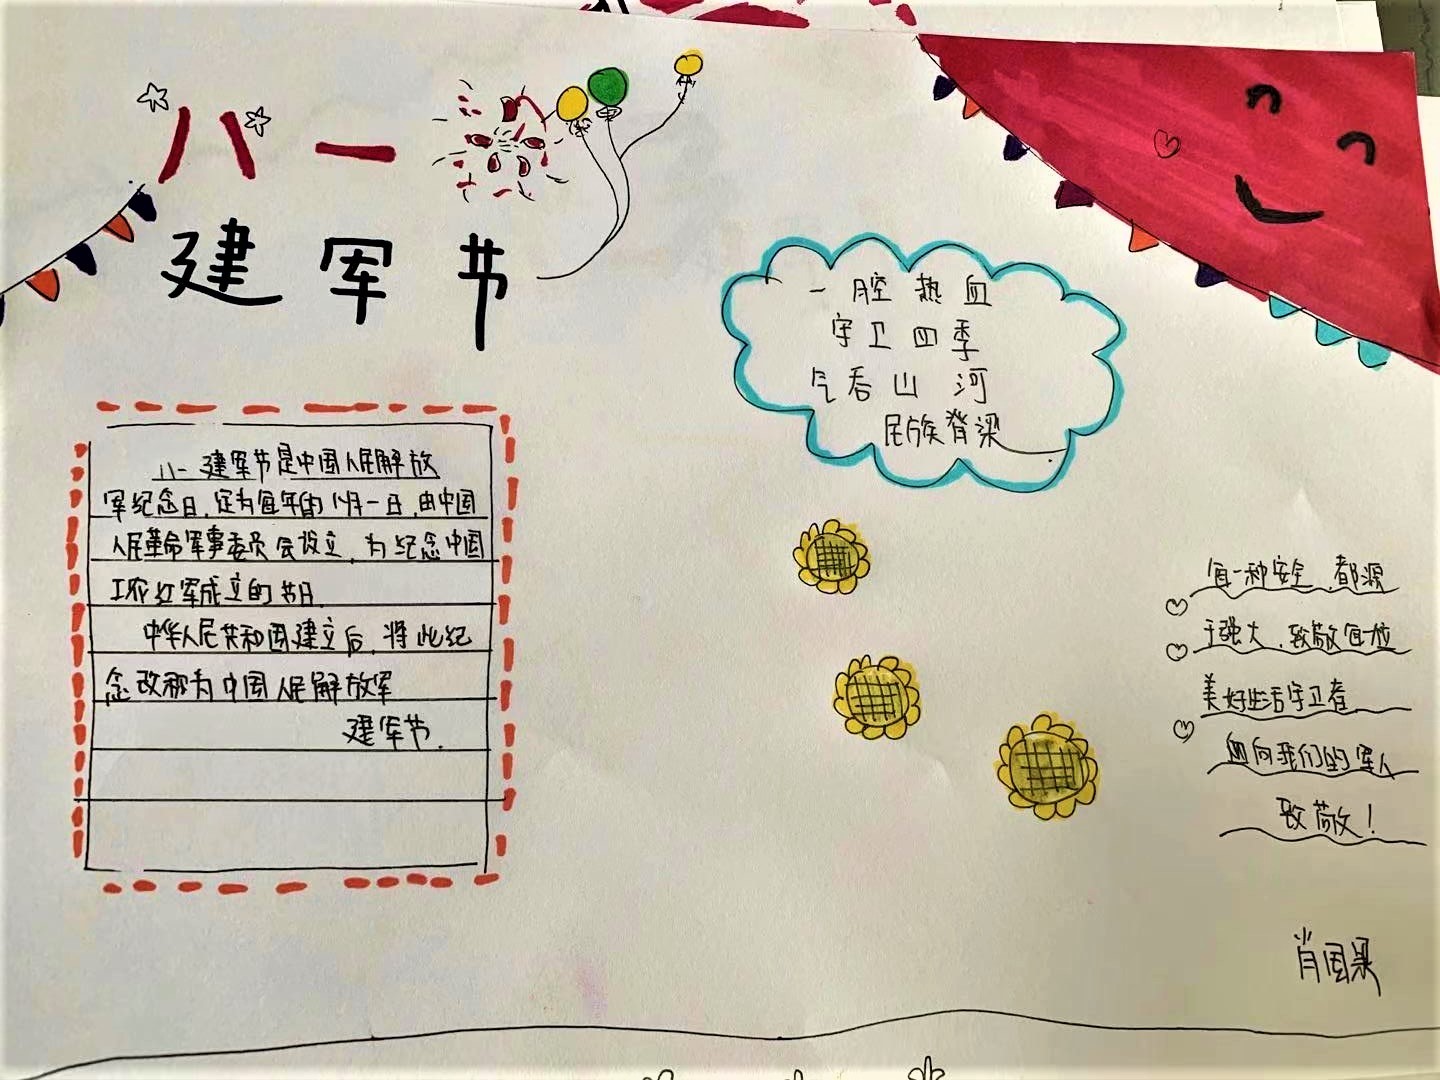 八一
建军节
一腔热血
守卫四季
气吞山河
民族脊梁
八一建军节是中国人民解放
军纪念日,定为每年的八月一日,由中国
人民革命军事委员会设立,为纪念中国
工农红军成立的节日
中华人民共和国建立后,将此纪
念改称为中国人民解放军
建军节.
每一种安全,都源
于强大,致敬每一位
美好生活守卫者
向我们的军人
致敬!
肖国梁